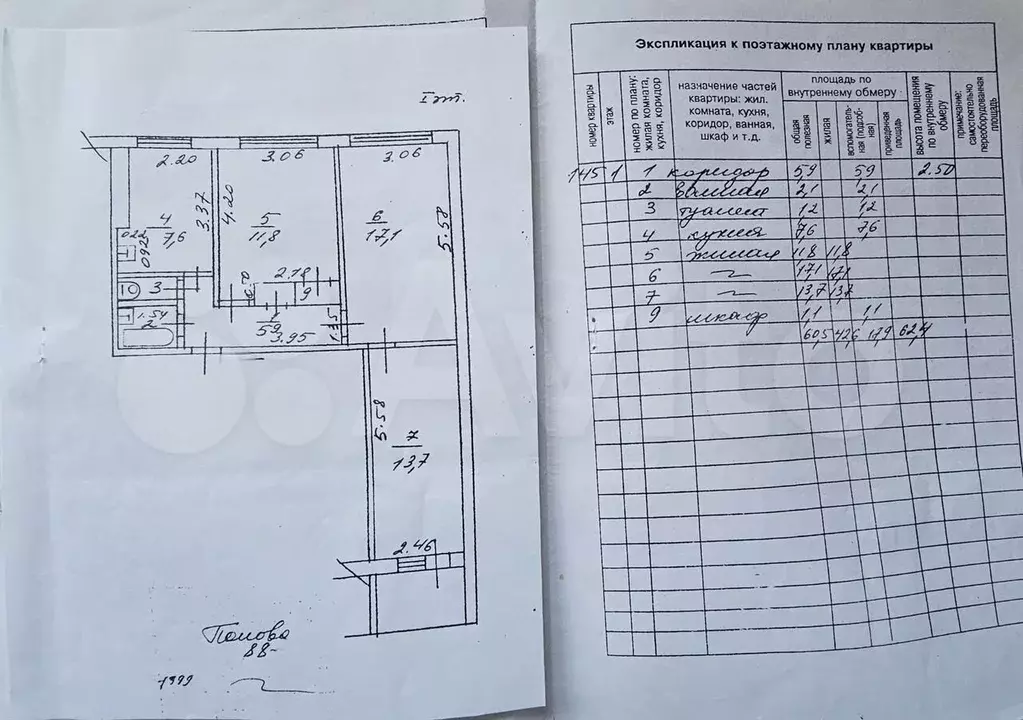 I эт.
2.20
3.06
3.06
4
7,6
3.37
4.20
5
11,8
6
17,1
5.58
3
2.18
9
1.54
2
1
5,9
3.95
1.35
5.58
7
13,7
2.46
Попова
88-
1999
Avito
Экспликация к поэтажному плану квартиры
номер квартиры
этаж
номер по плану: жилая комната, кухня, коридор
назначение частей квартиры: жил. комната, кухня, коридор, ванная, шкаф и т.д.
площадь по внутреннему обмеру
общая полезная
жилая
вспомогательная (подсобная)
приведенная площадь
высота помещения по внутреннему обмеру
примечание: самостоятельно переоборудованная площадь
145 1 1 коридор 5,9 5,9 2.50
2 ванная 2,1 2,1
3 туалет 1,2 1,2
4 кухня 7,6 7,6
5 жилая 11,8 11,8
6 17,1 17,1
7 13,7 13,7
9 шкаф 1,1 1,1
60,5 42,6 17,9 62,4